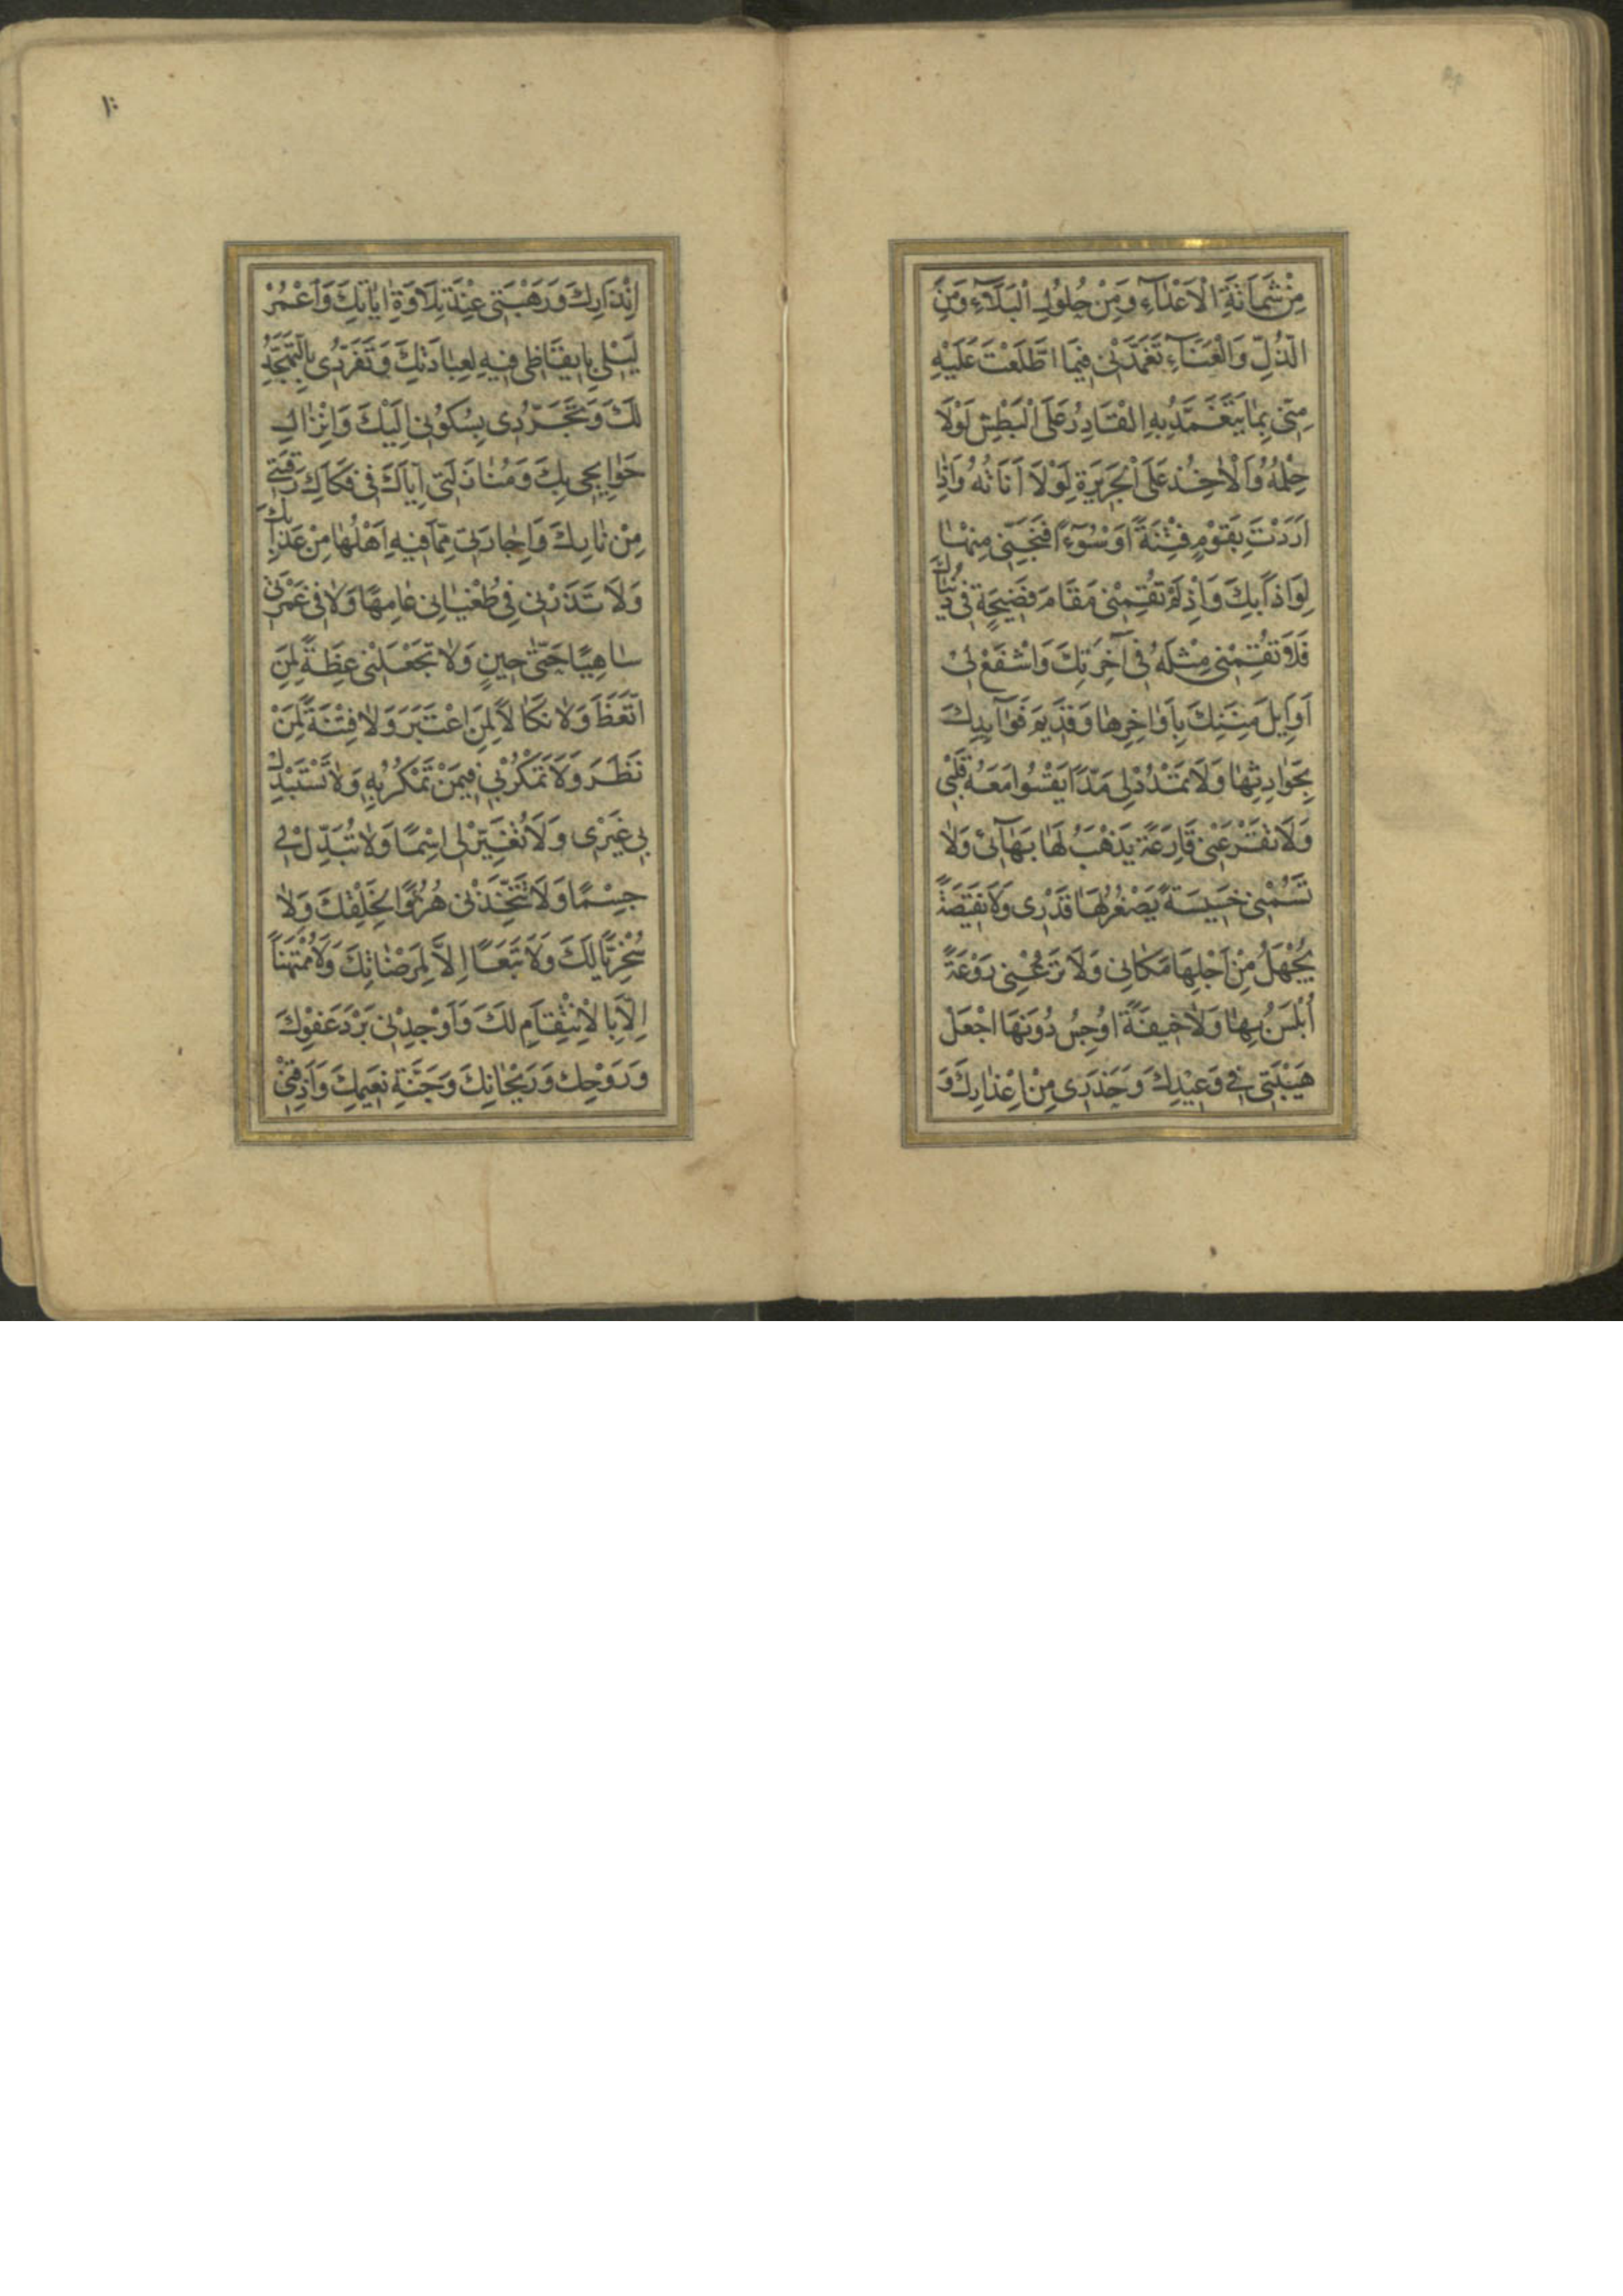 مِنْ شَمَاتَةِ الْاَعْدَآءِ وَمِنْ حُلُولِ الْبَلَآءِ وَمِنَ
الذُّلِّ وَالْعَنَآءِ تَغَمَّدْنِي فِيمَا اطَّلَعْتَ عَلَيْهِ
مِنِّي بِمَا يَتَغَمَّدُ بِهِ الْقَادِرُ عَلَى الْبَطْشِ لَوْلَا
حِلْمُهُ وَالْاٰخِذُ عَلَى الْجَرِيرَةِ لَوْلَا اَنَاتُهُ وَاِذَا
اَرَدْتَ بِقَوْمٍ فِتْنَةً اَوْ سُوٓءًا فَنَجِّنِي مِنْهَا
لِوَاذًا بِكَ وَاِذْ لَمْ تُقِمْنِي مَقَامَ فَضِيحَةٍ فِي دُنْيَاكَ
فَلَا تُقِمْنِي مِثْلَهُ فِي آخِرَتِكَ وَاشْفَعْ لِي
اَوَايِلَ مِنَنِكَ بِاَوَاخِرِهَا وَقَدِيمَ فَوَآيِدِكَ
بِحَوَادِثِهَا وَلَا تَمْدُدْ لِي مَدًّا يَقْسُوا مَعَهُ قَلْبِي
وَلَا تَقْرَعْنِي قَارِعَةً يَذْهَبُ لَهَا بَهَآئِي وَلَا
تَسُمْنِي خَسِيسَةً يَصْغُرُ لَهَا قَدْرِي وَلَا نَقِيصَةً
يُجْهَلُ مِنْ اَجْلِهَا مَكَانِي وَلَا تَرُعْنِي رَوْعَةً
اُبْلِسُ بِهَا وَلَا خِيفَةً اُوجِسُ دُونَهَا اجْعَلْ
هَيْبَتِي فِي وَعِيدِكَ وَحَذَرِي مِنْ اِعْذَارِكَ وَ
اِنْذَارِكَ وَرَهْبَتِي عِنْدَ تِلَاوَةِ اٰيَاتِكَ وَاعْمُرْ
لَيْلِي بِاِيقَاظِي فِيهِ لِعِبَادَتِكَ وَتَفَرُّدِي بِالتَّهَجُّدِ
لَكَ وَتَجَرُّدِي بِسُكُونِي اِلَيْكَ وَاِنْزَالِ
حَوَايِجِي بِكَ وَمُنَازَلَتِي اِيَّاكَ فِي فَكَاكِ رَقَبَتِي
مِنْ نَارِكَ وَاِجَارَتِي مِمَّا فِيهِ اَهْلُهَا مِنْ عَذَابِكَ
وَلَا تَذَرْنِي فِي طُغْيَانِي عَامِهًا وَلَا فِي غَمْرَتِي
سَاهِيًا حَتَّى حِينٍ وَلَا تَجْعَلْنِي عِظَةً لِمَنِ
اتَّعَظَ وَلَا نَكَالًا لِمَنِ اعْتَبَرَ وَلَا فِتْنَةً لِمَنْ
نَظَرَ وَلَا تَمْكُرْ بِي فِيمَنْ تَمْكُرُ بِهِ وَلَا تَسْتَبْدِلْ
بِي غَيْرِي وَلَا تُغَيِّرْ لِي اسْمًا وَلَا تُبَدِّلْ لِي
جِسْمًا وَلَا تَتَّخِذْنِي هُزُوًا لِخَلْقِكَ وَلَا
سُخْرِيًّا لَكَ وَلَا تَبَعًا اِلَّا لِمَرْضَاتِكَ وَلَا مُمْتَهَنًا
اِلَّا بِالْاِنْتِقَامِ لَكَ وَاَوْجِدْنِي بَرْدَ عَفْوِكَ
وَرَوْحِكَ وَرَيْحَانِكَ وَجَنَّةِ نَعِيمِكَ وَاَذِقْنِي